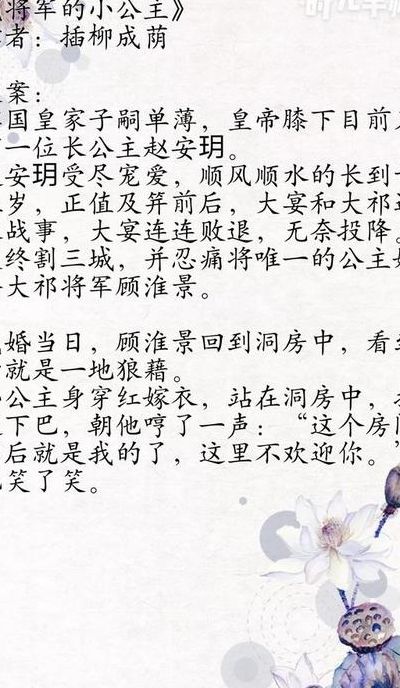 将军的小公主》
者：插柳成荫
案：
国皇家子嗣单薄，皇帝膝下目前
一位长公主赵安玥。
安玥受尽宠爱，顺风顺水的长到
岁，正值及笄前后，大宴和大祁
战事，大宴连连败退，无奈投降。
终割三城，并忍痛将唯一的公主
大祁将军顾淮景。
婚当日，顾淮景回到洞房中，看
就是一地狼藉。
公主身穿红嫁衣，站在洞房中，
下巴，朝他哼了一声：“这个房
后就是我的了，这里不欢迎你。”
笑了笑。